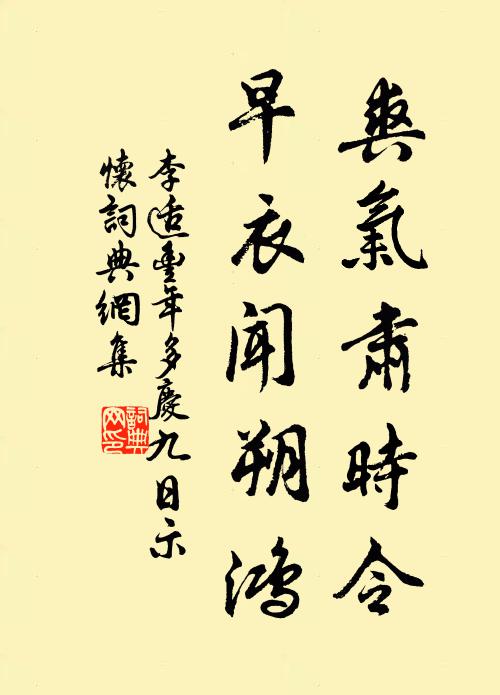 爽氣肅時令
早衣聞朔鴻
李适豐年多慶九日示
懷詞典網集
詞典網印